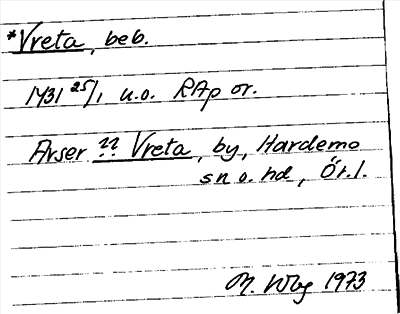 *Vreta, beb.
1431 25/1 u.o. RAp or.
Avser ?? Vreta, by, Hardemo
sn o. hd, Ör. l.
M. Wbg 1973